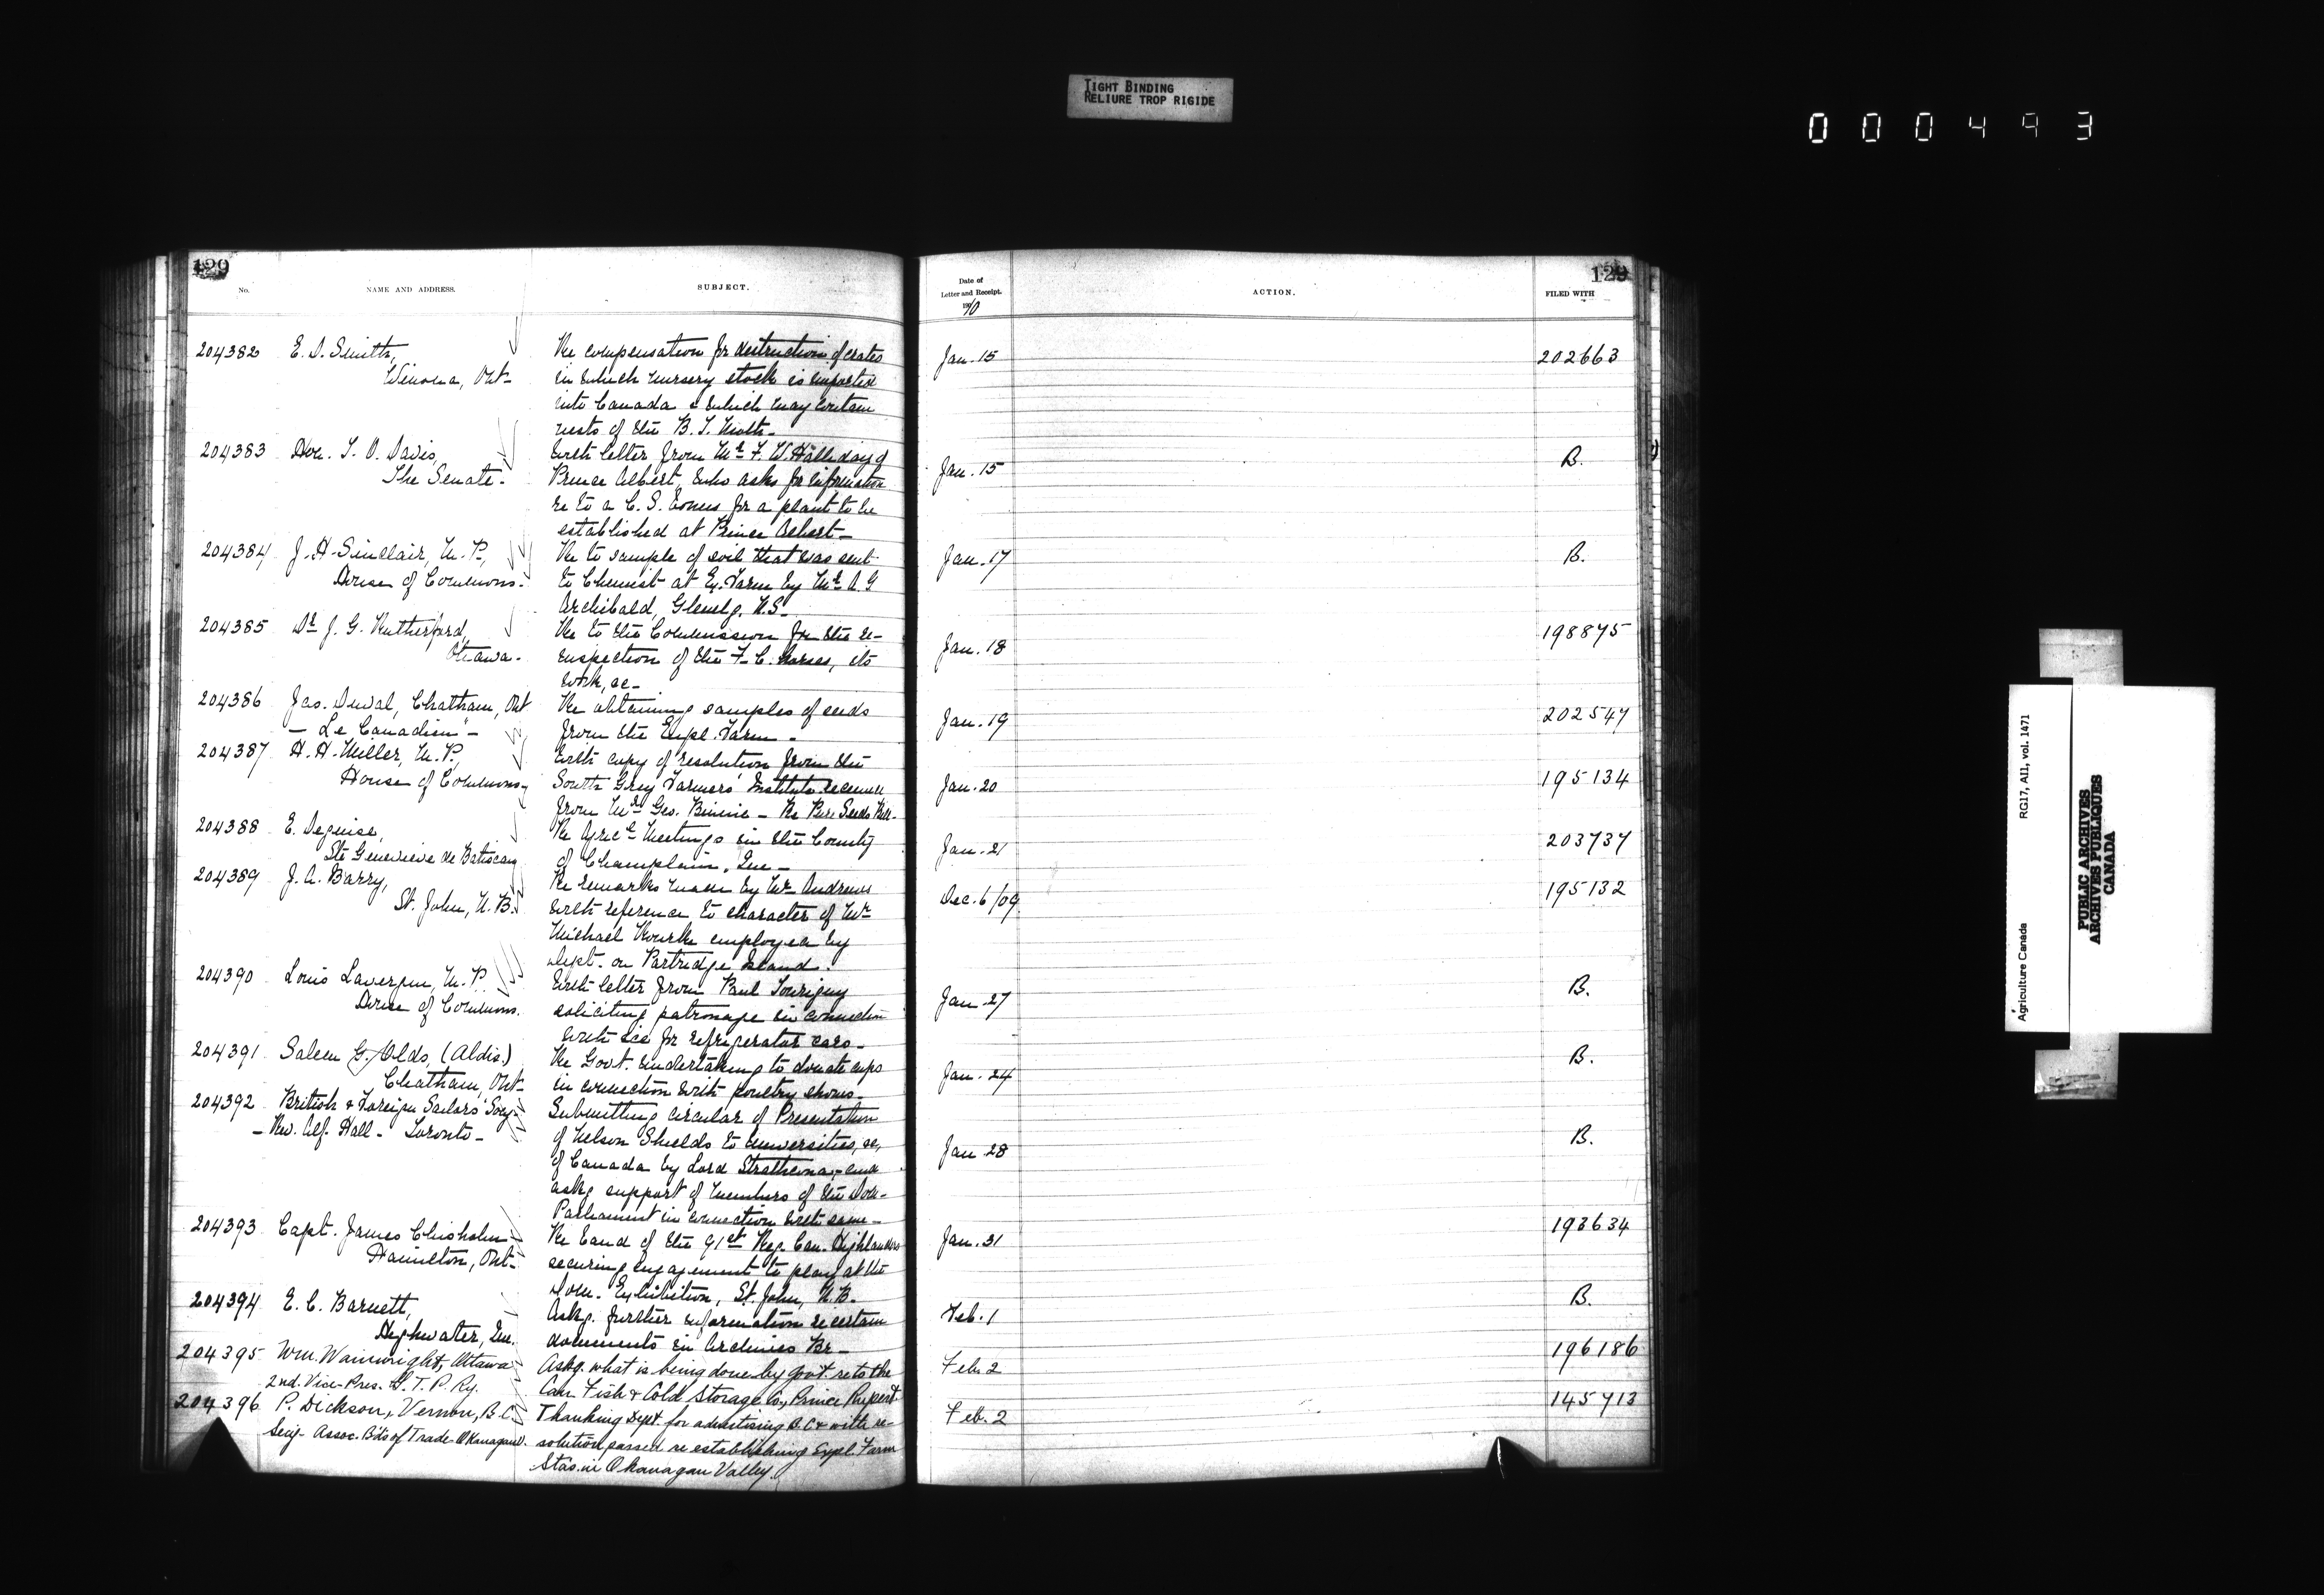 TIGHT BINDING
RELIURE TROP RIGIDE
000493
129
No.
NAME AND ADDRESS.
SUBJECT.
204382 E. D. Smith, Re compensation for destruction of crates
Winona, Ont- in which nursery stock is imported
into Canada & which may contain
nests of the B. T. Moth-
204383 Hon. T. O. Davis, With letter from Mr F. W. Halliday of
The Senate- Prince Albert, who asks for information
re to a C. S. for a plant to be
established at Prince Albert-
204384 J. H. Sinclair, M. P., Re to sample of soil that was sent
House of Commons- to Chemist at Ex. Farm by Mr A. G
Archibald, Glenelg, N.S-
204385 Dr J. G. Rutherford, Re to the Commission for the re-
Ottawa- inspection of the F. C. horses, its
work, &c-
204386 Jas. Duval, Chatham, Ont Re obtaining samples of seeds
- "Le Canadien" - from the Expl. Farm-
204387 H. H. Miller, M. P., With copy of resolution from the
House of Commons- South Grey Farmers' Institute received
from Mr Geo. Binnie - Re Pure Seeds
204388 E. Deguise, Re Agricl Meetings in the County
Ste Genevieve de Batiscan of Champlain, Que-
204389 J. A. Barry, Re remarks made by Mr Andrews
St. John, N.B. with reference to character of Mr
Michael Rourke employed by
Dept. on Partridge Island.
204390 Louis Lavergne, M. P. With letter from Paul Tourigny
House of Commons. soliciting patronage in connection
with ice for refrigerator cars-
204391 Saleem G. Olds, (Aldis.) Re Govt. undertaking to donate cups
Chatham, Ont- in connection with poultry shows-
204392 British & Foreign Sailors' Socy- Submitting circular of Presentation
- Rev. Alf. Hall- Toronto- of Nelson Shields to Universities, &c,
of Canada by Lord Strathcona, and
askg support of members of the Dom-
Parliament in connection with same-
204393 Capt. James Chisholm- Re band of the 91st Reg. Can. Highlanders
Hamilton, Ont- securing engagement to play at the
Dom. Exhibition, St. John, N.B-
204394 E. C. Barnett, Askg. further information re certain
Highwater, Que. documents in Archives Br-
204395 Wm. Wainwright, Ottawa Askg. what is being done by govt. re to the
2nd. Vice-Pres. G. T. P. Ry. Can Fish & Cold Storage Co., Prince Rupert
204396 P. Dickson, Vernon, B.C. Thanking Dept. for advertising B.C. & with re-
Secy- Assoc. Bds of Trade Okanagan V. solution passed re establishing Expl. Farm
Stas. in Okanagan Valley.
129
Date of
Letter and Receipt.
190/10
ACTION.
FILED WITH
Jan. 15 202663
Jan. 15 B.
Jan. 17 B.
Jan. 18 198875
Jan. 19 202547
Jan. 20 195134
Jan. 21 203737
Dec. 6/09 195132
Jan. 27 B.
Jan. 24 B.
Jan 28 B.
Jan. 31 193634
Feb. 1 B.
Feb. 2 196186
Feb. 2 145713
Agriculture Canada RG17, AII, vol. 1471
PUBLIC ARCHIVES
ARCHIVES PUBLIQUES
CANADA